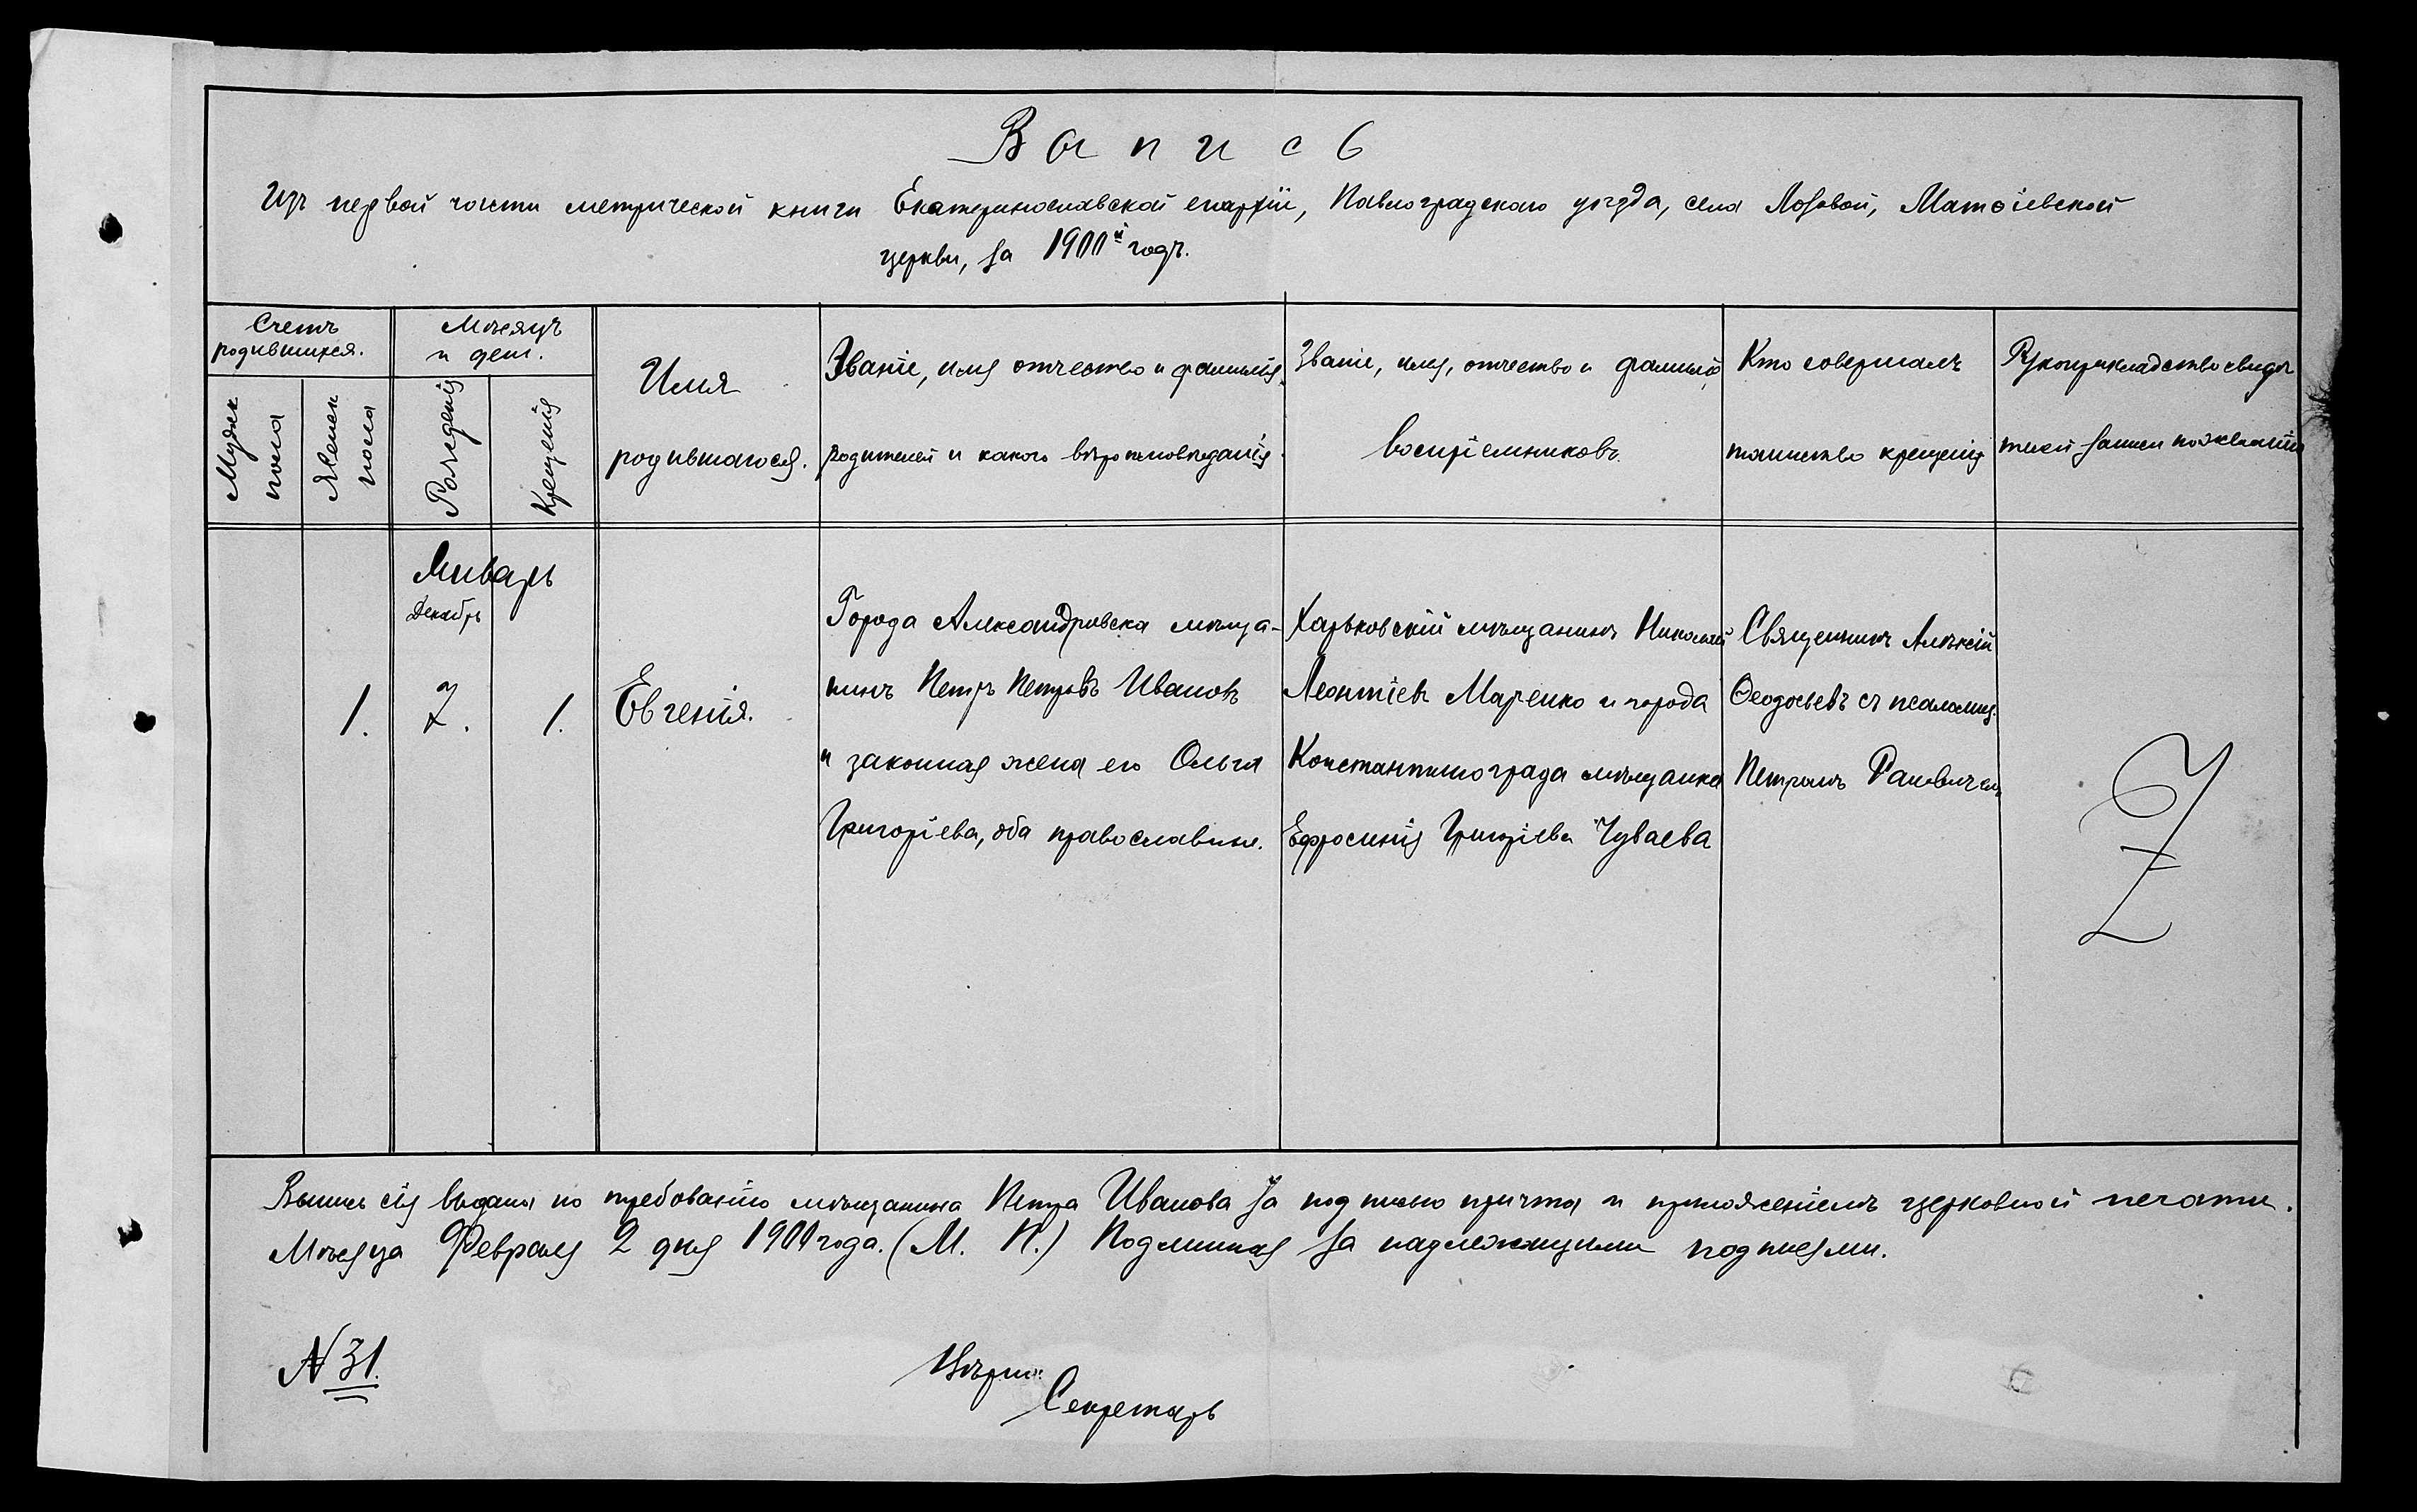 Запись
Изъ первой части метрической книги Екатеринославской епархіи, Павлоградскаго уѣзда, села Лозовой, Матѳіевской
церкви, за 1900й годъ.
Счетъ
родившихся.
Мужск
пола
Женск
пола
Мѣсяцъ
и день.
Рожденія
Крещенія
Имя
родившагося.
Званіе, имя отчество и фамилія
родителей и какого вѣроисповѣданія.
Званіе, имя, отчество и фамилія
воспріемниковъ.
Кто совершалъ
таинство крещенія
Рукоприкладство свидѣ
телей записи по желанію
Январь
Декабрь
1.
7.
1.
Евгенія.
Города Александровска мѣща-
нинъ Петръ Петровъ Ивановъ
и законная жена его Ольга
Григоріева, оба православные.
Харьковскій мѣщанинъ Николай
Леонтіевъ Маренко и города
Константинограда мѣщанка
Ефросинія Григоріева Чуваева
Священникъ Алексій
Ѳеодосьевъ съ псаломщ.
Петромъ
Выпись сія выдана по требованію мѣщанина Петра Иванова за подписью причта и приложеніемъ церковной печати.
Мѣсяца Февраля 2 дня 1900 года. (М. П.) Подлинная за надлежащими подписями.
№ 31.
Вѣрно:
Секретарь